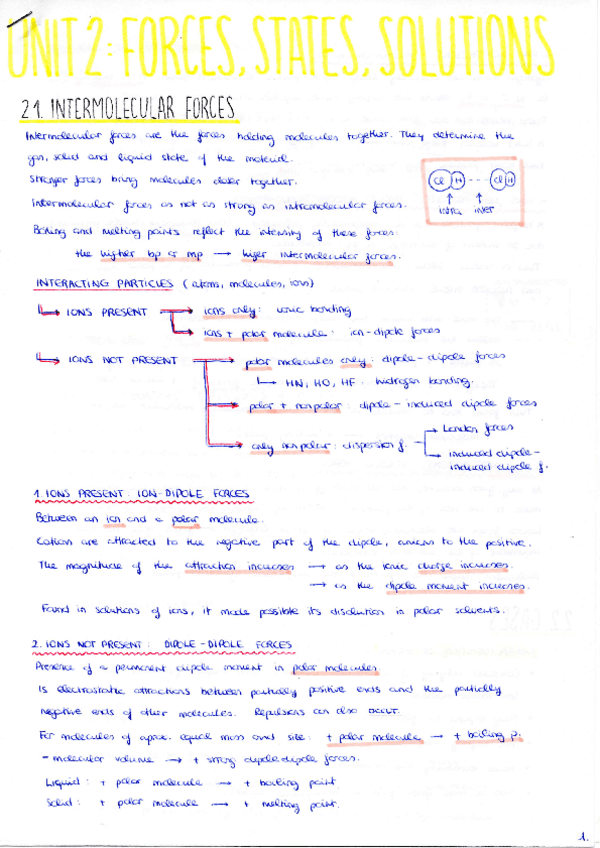 UNIT 2: FORCES, STATES, SOLUTIONS
2.1. INTERMOLECULAR FORCES
Intermolecular forces are the forces holding molecules together. They determine the
gas, solid and liquid state of the material.
Stronger forces bring molecules closer together.
Intermolecular forces as not as strong as intramolecular forces.
Cl H --- Cl H
intra inter
Boiling and melting points reflect the intensity of these forces:
the higher bp or mp → higer intermolecular forces.
INTERACTING PARTICLES (atoms, molecules, ions)
→ IONS PRESENT → ions only: ionic bonding
→ ions + polar molecule: ion-dipole forces
→ IONS NOT PRESENT → polar molecules only: dipole-dipole forces
→ HN, HO, HF: hydrogen bonding.
→ polar + nonpolar: dipole-induced dipole forces
→ only nonpolar: dispersion f. → London forces
→ induced dipole-
induced dipole f.
1. IONS PRESENT: ION-DIPOLE FORCES
Between an ion and a polar molecule.
Cation are attracted to the negative part of the dipole, anions to the positive.
The magnitude of the attraction increases → as the ionic charge increases.
→ as the dipole moment increases.
Found in solutions of ions, it made possible its disolution in polar solvents.
2. IONS NOT PRESENT: DIPOLE-DIPOLE FORCES
Presence of a permanent dipole moment in polar molecules.
Is electrostatic attractions between partially positive ends and the partially
negative ends of other molecules. Repulsions can also occur.
For molecules of aprox. equal mass and size: + polar molecule → + boiling p.
- molecular volume → + strong dipole dipole forces.
Liquid: + polar molecule → + boiling point.
Solid: + polar molecule → + melting point.
1.